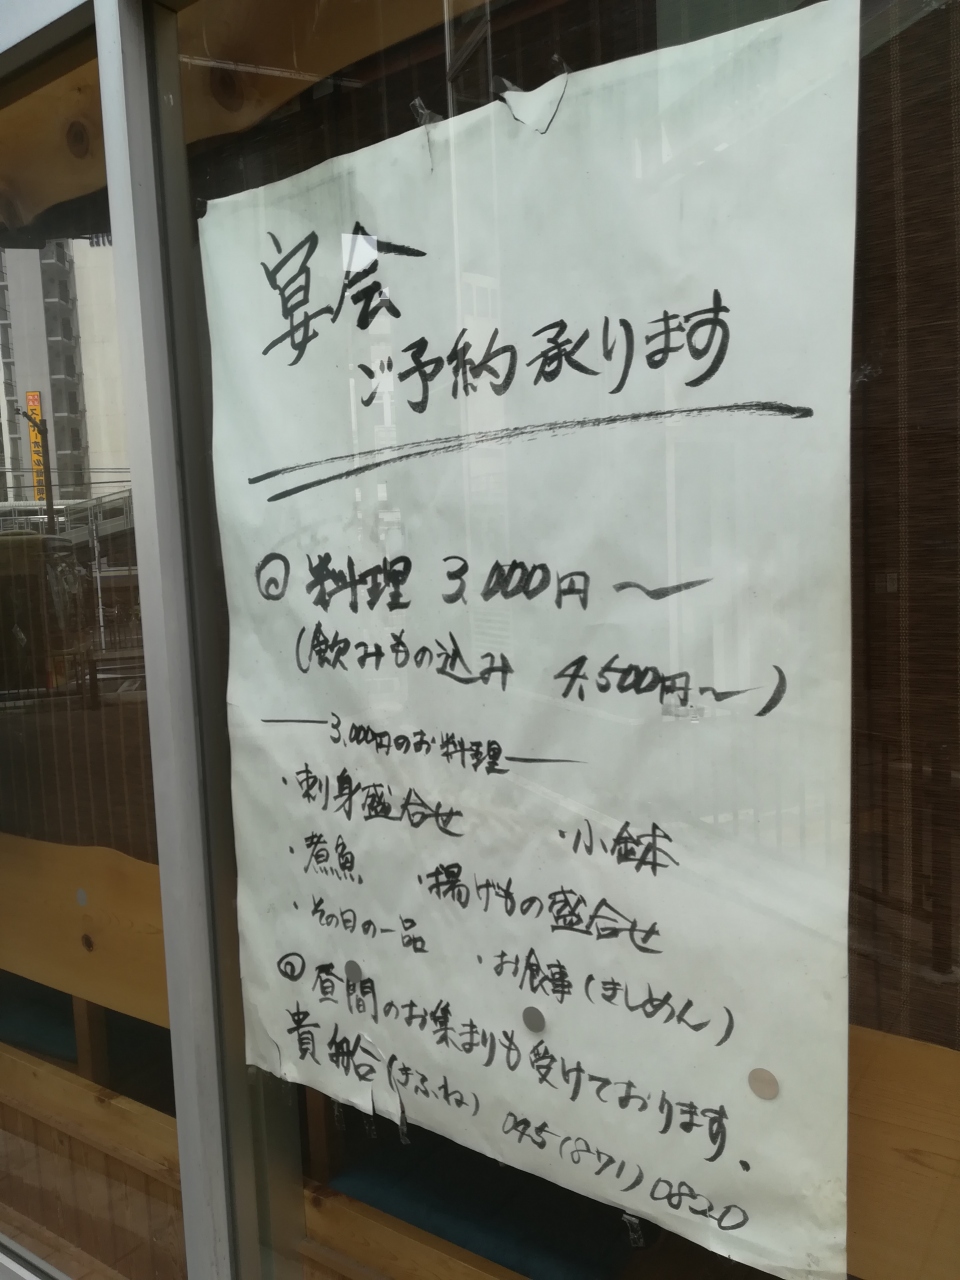 宴会
ご予約承ります
◎ 料理 3,000円〜
(飲みもの込み 4,500円〜)
3,000円のお料理
・刺身盛合せ ・小鉢
・煮魚 ・揚げもの盛合せ
・その日の一品 ・お食事(きしめん)
◎ 昼間のお集まりも受けております、
貴船台(きふね) 045(871)0820